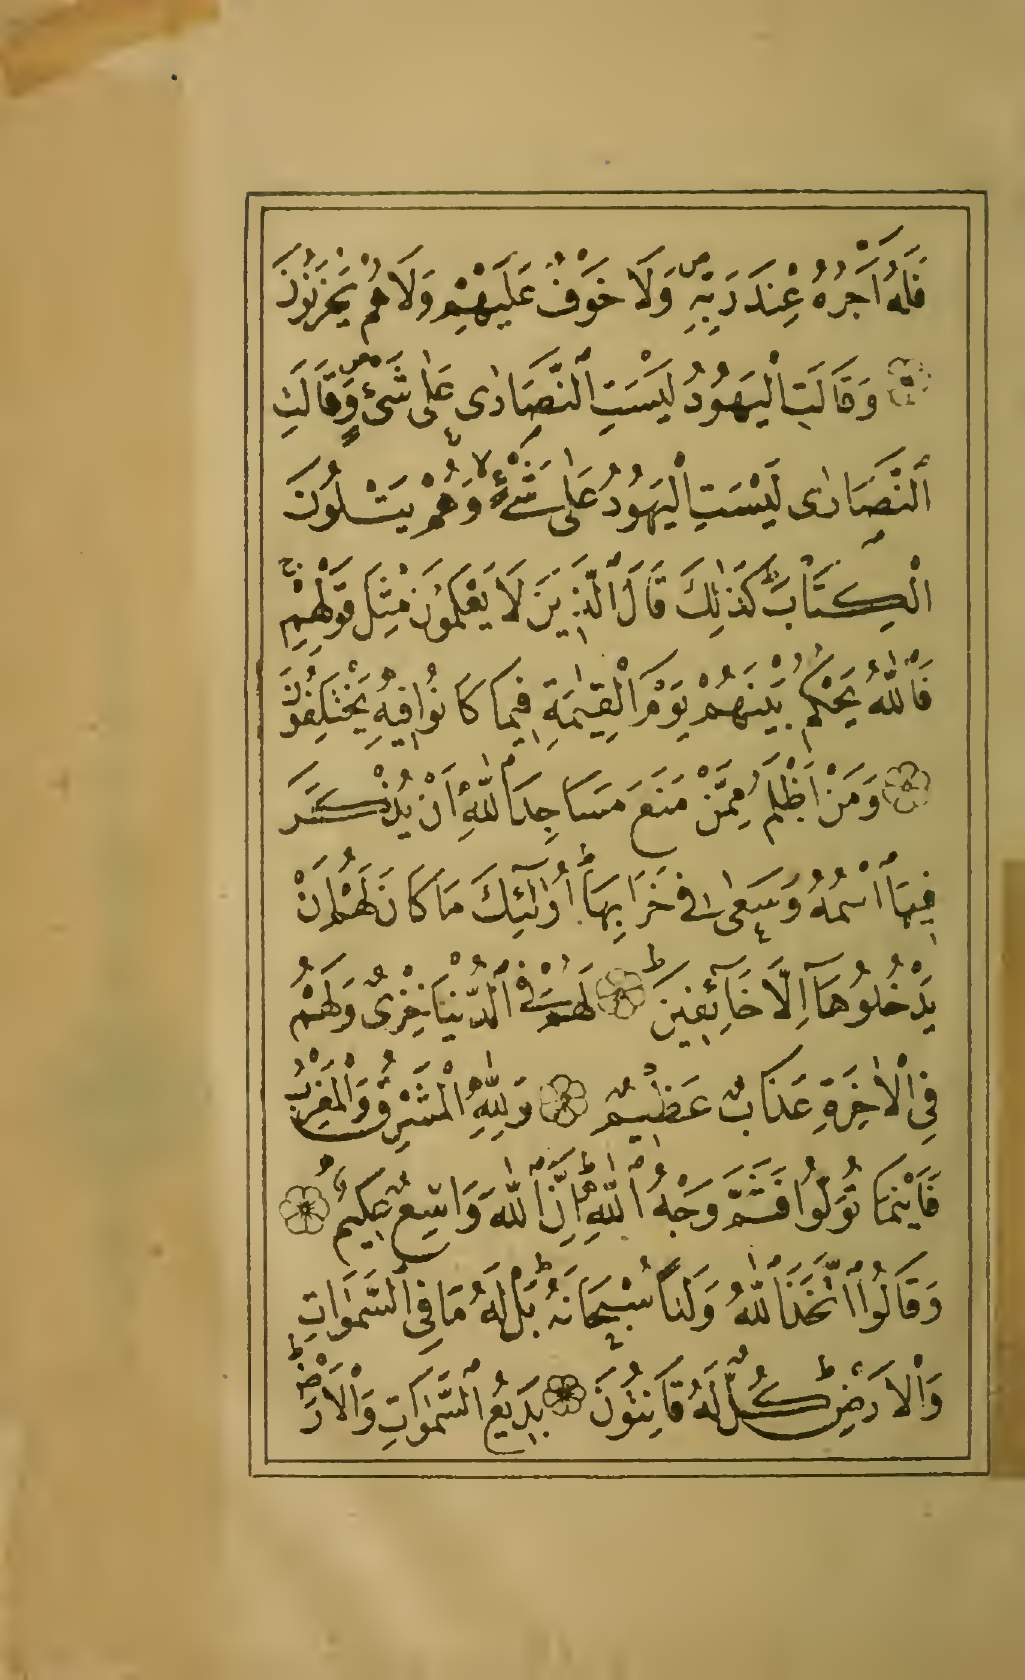 فَلَهُ اَجْرُهُ عِنْدَ رَبِّهِ ۖ وَلَا خَوْفٌ عَلَيْهِمْ وَلَا هُمْ يَحْزَنُونَ
وَقَالَتِ الْيَهُودُ لَيْسَتِ النَّصَارٰى عَلٰى شَىْءٍ ۖ وَقَالَتِ
النَّصَارٰى لَيْسَتِ الْيَهُودُ عَلٰى شَىْءٍ ۙ وَهُمْ يَتْلُونَ
الْكِتَابَ ۗ كَذٰلِكَ قَالَ الَّذِينَ لَا يَعْلَمُونَ مِثْلَ قَوْلِهِمْ ۚ
فَاللّٰهُ يَحْكُمُ بَيْنَهُمْ يَوْمَ الْقِيٰمَةِ فِيمَا كَانُوا فِيهِ يَخْتَلِفُونَ
وَمَنْ اَظْلَمُ مِمَّنْ مَنَعَ مَسَاجِدَ اللّٰهِ اَنْ يُذْكَرَ
فِيهَا اسْمُهُ وَسَعٰى فِى خَرَابِهَا ۗ اُولٰٓئِكَ مَا كَانَ لَهُمْ اَنْ
يَدْخُلُوهَٓا اِلَّا خَٓائِفِينَ ۗ لَهُمْ فِى الدُّنْيَا خِزْىٌ وَلَهُمْ
فِى الْاٰخِرَةِ عَذَابٌ عَظِيمٌ وَلِلّٰهِ الْمَشْرِقُ وَالْمَغْرِبُ
فَاَيْنَمَا تُوَلُّوا فَثَمَّ وَجْهُ اللّٰهِ ۗ اِنَّ اللّٰهَ وَاسِعٌ عَلِيمٌ
وَقَالُوا اتَّخَذَ اللّٰهُ وَلَدًا سُبْحَانَهُ ۗ بَلْ لَهُ مَا فِى السَّمٰوَاتِ
وَالْاَرْضِ ۗ كُلٌّ لَهُ قَانِتُونَ بَدِيعُ السَّمٰوَاتِ وَالْاَرْضِ ۗ